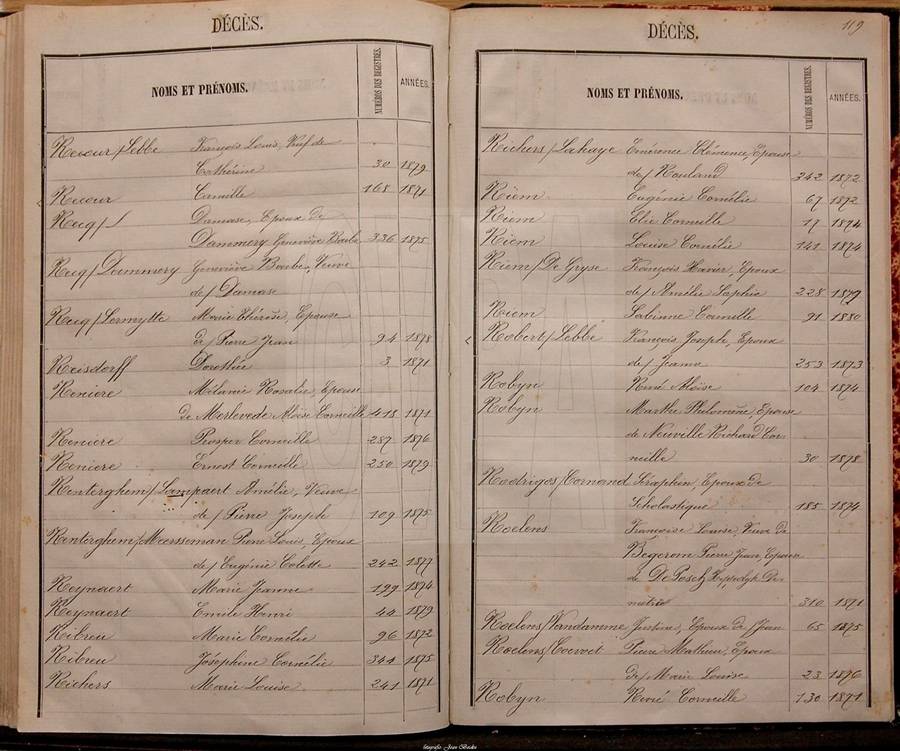 DÉCÈS.
NOMS ET PRÉNOMS. NUMÉROS DES REGISTRES. ANNÉES.
Recour/Lebbe François Louis, Veuf de
Cathérine 30 1879
Recour Camille 168 1871
Recq/L Damase, Epoux de
Dammery Geneviève Barbe 336 1875
Recq/Dammery Geneviève Barbe, Veuve
de/ Damase
Recq/Lermytte Marie Thérèse, Epouse
de/ Pierre Jean 94 1878
Reisdorff Dorothée 3 1871
Reniere Mélanie Rosalie, Epouse
de Merlevede Aloïse Corneille 418 1871
Reniere Prosper Corneille 287 1876
Reniere Ernest Corneille 250 1879
Renterghem/Lampaert Amélie, Veuve
de/ Pierre Joseph 109 1875
Renterghem/Meersseman Pierre Louis, Epoux
de/ Eugénie Colette 242 1877
Reynaert Marie Jeanne 199 1874
Reynaert Emile Henri 44 1879
Ribreu Marie Cornélie 96 1872
Ribreu Joséphine Cornélie 344 1875
Richers Marie Louise 241 1871
DÉCÈS. 119
NOMS ET PRÉNOMS. NUMÉROS DES REGISTRES. ANNÉES.
Richers/Lahaye Emérence Clémence, Epouse
de/ Rouland 342 1872
Riem Eugénie Cornélie 67 1872
Riem Elie Corneille 17 1874
Riem Louise Cornélie 141 1874
Riem/De Gryse François Xavier, Epoux
de/ Amélie Sophie 228 1879
Riem Sabinne Camille 91 1880
Robert/Lebbe François Joseph, Epoux
de/ Jeanne 253 1873
Robyn René Aloïse 104 1874
Robyn Marthe Philomène, Epouse
de Neuville Richard Cor-
neille 30 1878
Rodrigos/Cornand Séraphin, Epoux de
Scholastique 185 1874
Roelens Françoise Louise, Veuve de
Begerom Pierre Jean, Epouse
de De Posch
310 1871
Roelens/Vandamme Justine, Epoux de/ Jean 65 1875
Roelens/Coevoet Pierre Mathieu, Epoux
de/ Marie Louise 23 1876
Robyn René Corneille 130 1871